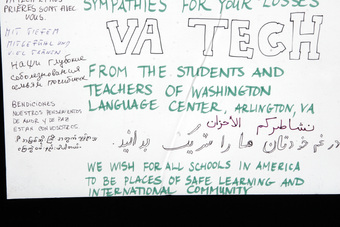 PRIÈRES SONT AVEC
VOUS.
MIT TIEFEM
MITGEFÜHL UND
VIEL TRAUER
наши глубокие
соболезнования
семьям погибших
BENDICIONES
NUESTROS PENSAMIENTOS
DE AMOR Y DE PAZ
ESTAN CON VOSOTROS.
SYMPATHIES FOR YOUR LOSSES
VA TECH
FROM THE STUDENTS AND
TEACHERS OF WASHINGTON
LANGUAGE CENTER, ARLINGTON, VA
نشاطركم الأحزان و
در غم خودتان ما را شریک بدانید.
WE WISH FOR ALL SCHOOLS IN AMERICA
TO BE PLACES OF SAFE LEARNING AND
INTERNATIONAL COMMUNITY